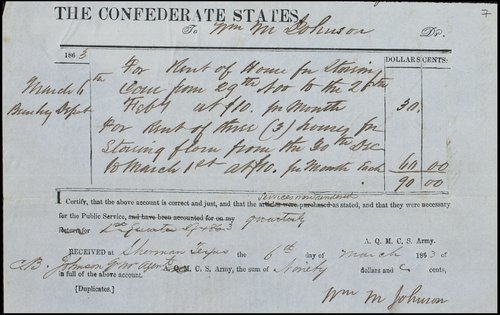 7
THE CONFEDERATE STATES,
To Wm M Johnson Dr.
1863 DOLLARS CENTS:
March 6th For Rent of House for Storing
Depot Corn from 29th Nov to the 28th
Feby at $10. pr Month 30.
For Rent of three (3) houses for
Storing flour from the 30th Dec
to March 1st at $10. pr Month Each 60 00
90 00
I Certify, that the above account is correct and just, and that the services were rendered articles were purchased as stated, and that they were necessary
for the Public Service, and have been accounted for on my quarterly
Return for 1st Quarter of 1863
A. Q. M. C. S. Army.
RECEIVED at Sherman Texas the 6th day of March 1863 of
Johnson A. Q. M. C. S. Army, the sum of Ninety dollars and cents,
in full of the above account.
[Duplicates.] Wm M Johnson